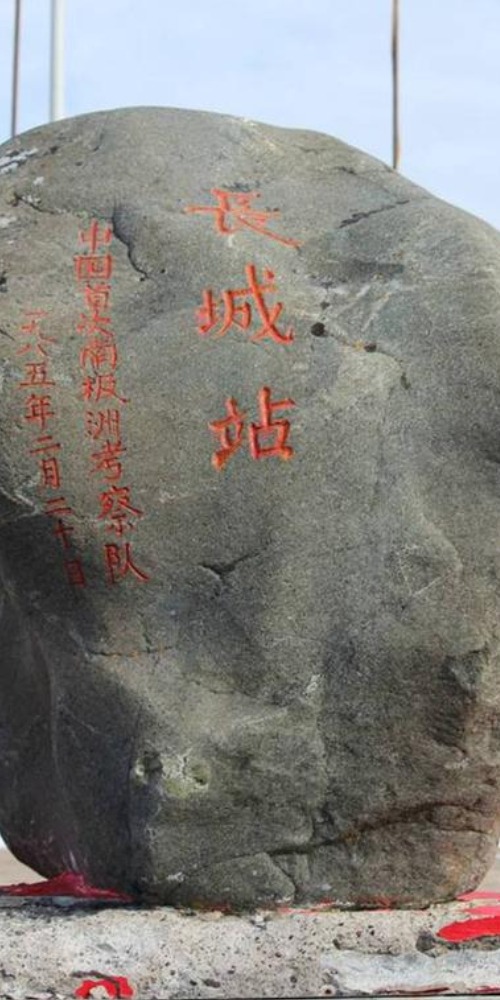 長城站
中国首次南极洲考察队
一九八五年二月二十日